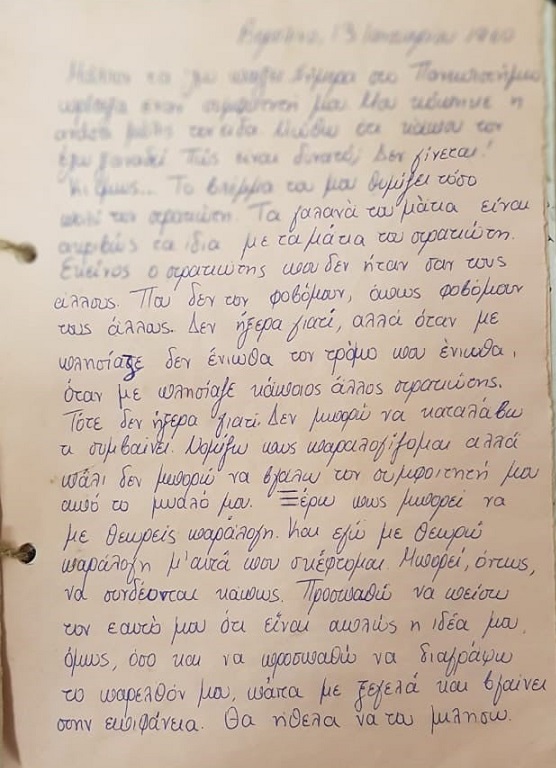 13 Ιανουαρίου 1960
τα σήμερα στο Πανεπιστήμιο
συμφοιτητή μου. Μου κόπηκε η
μόλις τον είδα. Νιώθω ότι κάπου τον
έχω ξαναδεί. Πώς είναι δυνατό; Δεν γίνεται!
Κι όμως... Το βλέμμα του μου θυμίζει τόσο
πολύ τον στρατιώτη. Τα γαλανά του μάτια είναι
ακριβώς τα ίδια με τα μάτια του στρατιώτη.
Εκείνος ο στρατιώτης που δεν ήταν σαν τους
άλλους. Που δεν τον φοβόμουν, όπως φοβόμουν
τους άλλους. Δεν ήξερα γιατί, αλλά όταν με
πλησίαζε δεν ένιωθα τον τρόμο που ένιωθα,
όταν με πλησίαζε κάποιος άλλος στρατιώτης.
Τότε δεν ήξερα γιατί. Δεν μπορώ να καταλάβω
τι συμβαίνει. Νομίζω πως παραλογίζομαι αλλά
πάλι δεν μπορώ να βγάλω τον συμφοιτητή μου
από το μυαλό μου. Ξέρω πως μπορεί να
με θεωρείς παράλογη. Και εγώ με θεωρώ
παράλογη μ'αυτά που σκέφτομαι. Μπορεί, όντως,
να συνδέονται κάπως. Προσπαθώ να πείσω
τον εαυτό μου ότι είναι απλώς η ιδέα μου,
όμως, όσο και να προσπαθώ να διαγράψω
το παρελθόν μου, πάντα με ξεγελά και βγαίνει
στην επιφάνεια. Θα ήθελα να του μιλήσω.